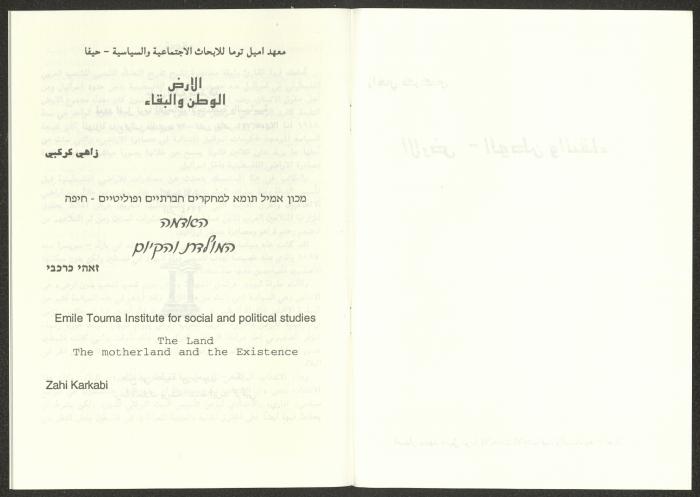 معهد اميل توما للابحاث الاجتماعية والسياسية - حيفا
الارض
الوطن والبقاء
زاهي كركبي
מכון אמיל תומא למחקרים חברתיים ופוליטיים - חיפה
האדמה
המולדת והקיום
זאהי כרכבי
Emile Touma Institute for social and political studies
The Land
The motherland and the Existence
Zahi Karkabi